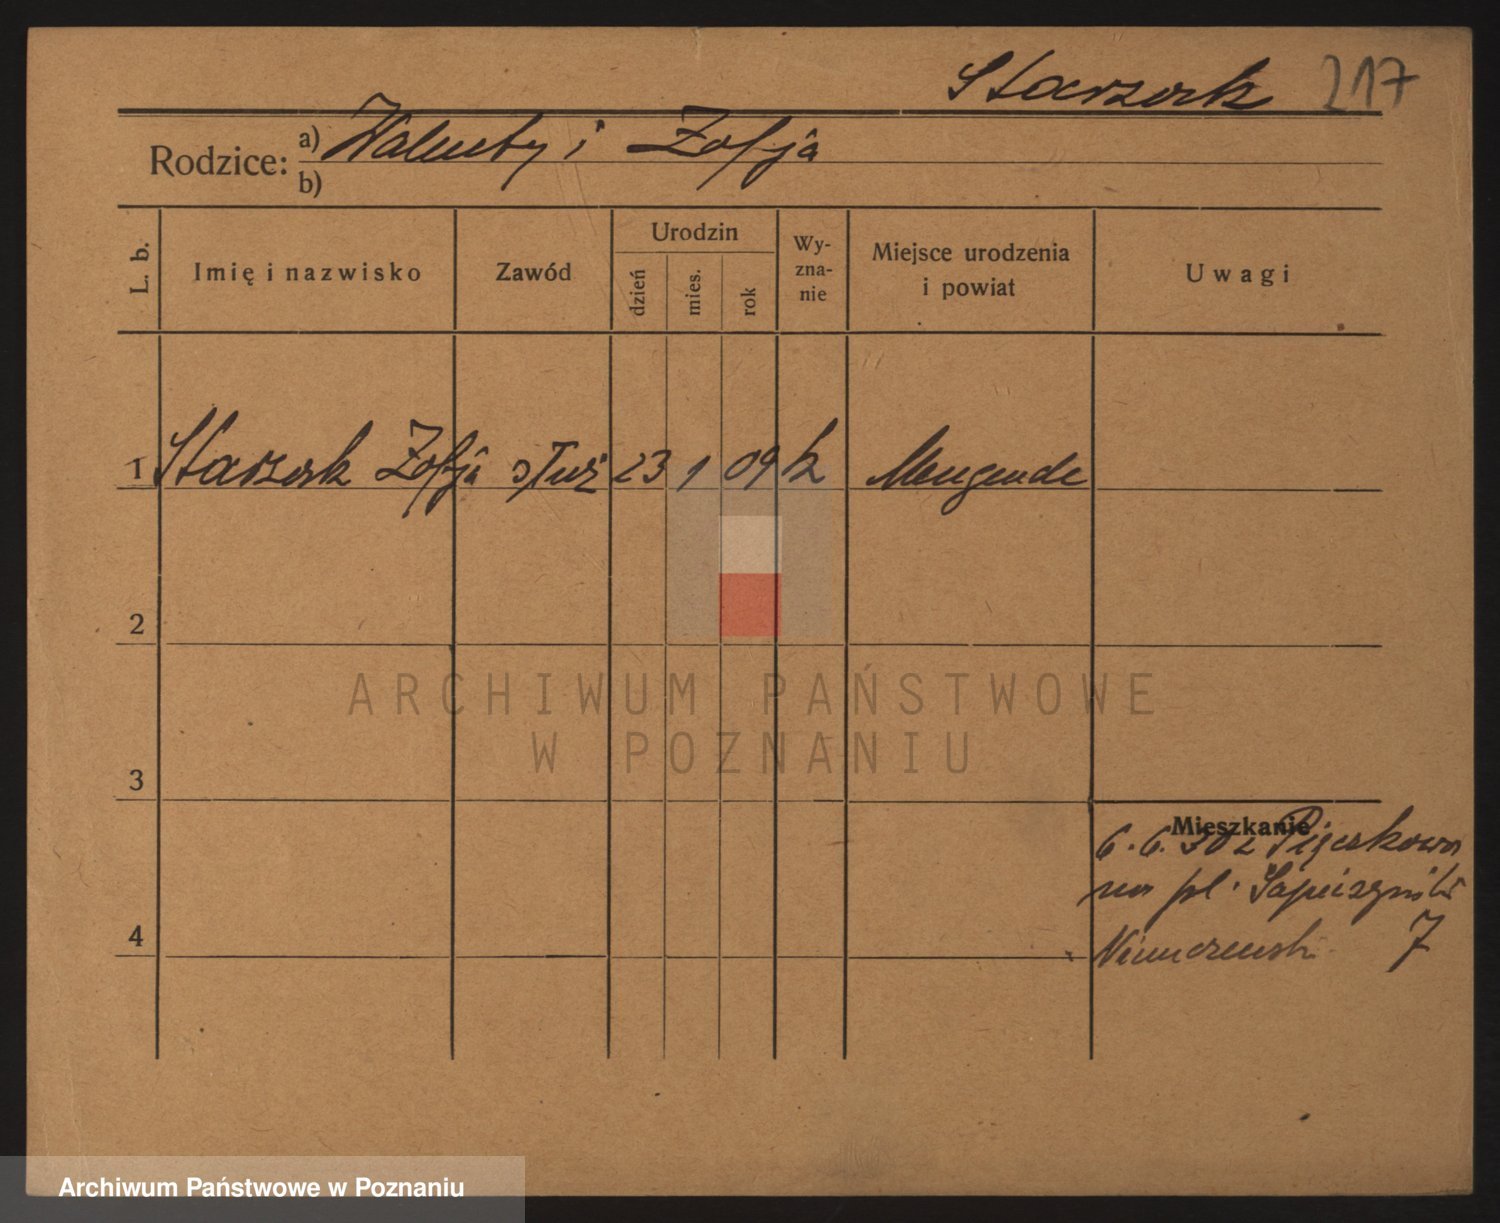 Starzerk 217
Rodzice: a) Walenty i Zofja
b)
L. b. Imię i nazwisko Zawód Urodzin dzień mies. rok Wyznanie Miejsce urodzenia i powiat Uwagi
1 Starzerk Zofja służ 23 1 09 k Mengende
2
ARCHIWUM PAŃSTWOWE
W POZNANIU
3
Mieszkanie
6. 6. 30 z
na pl.
4 7
Archiwum Państwowe w Poznaniu